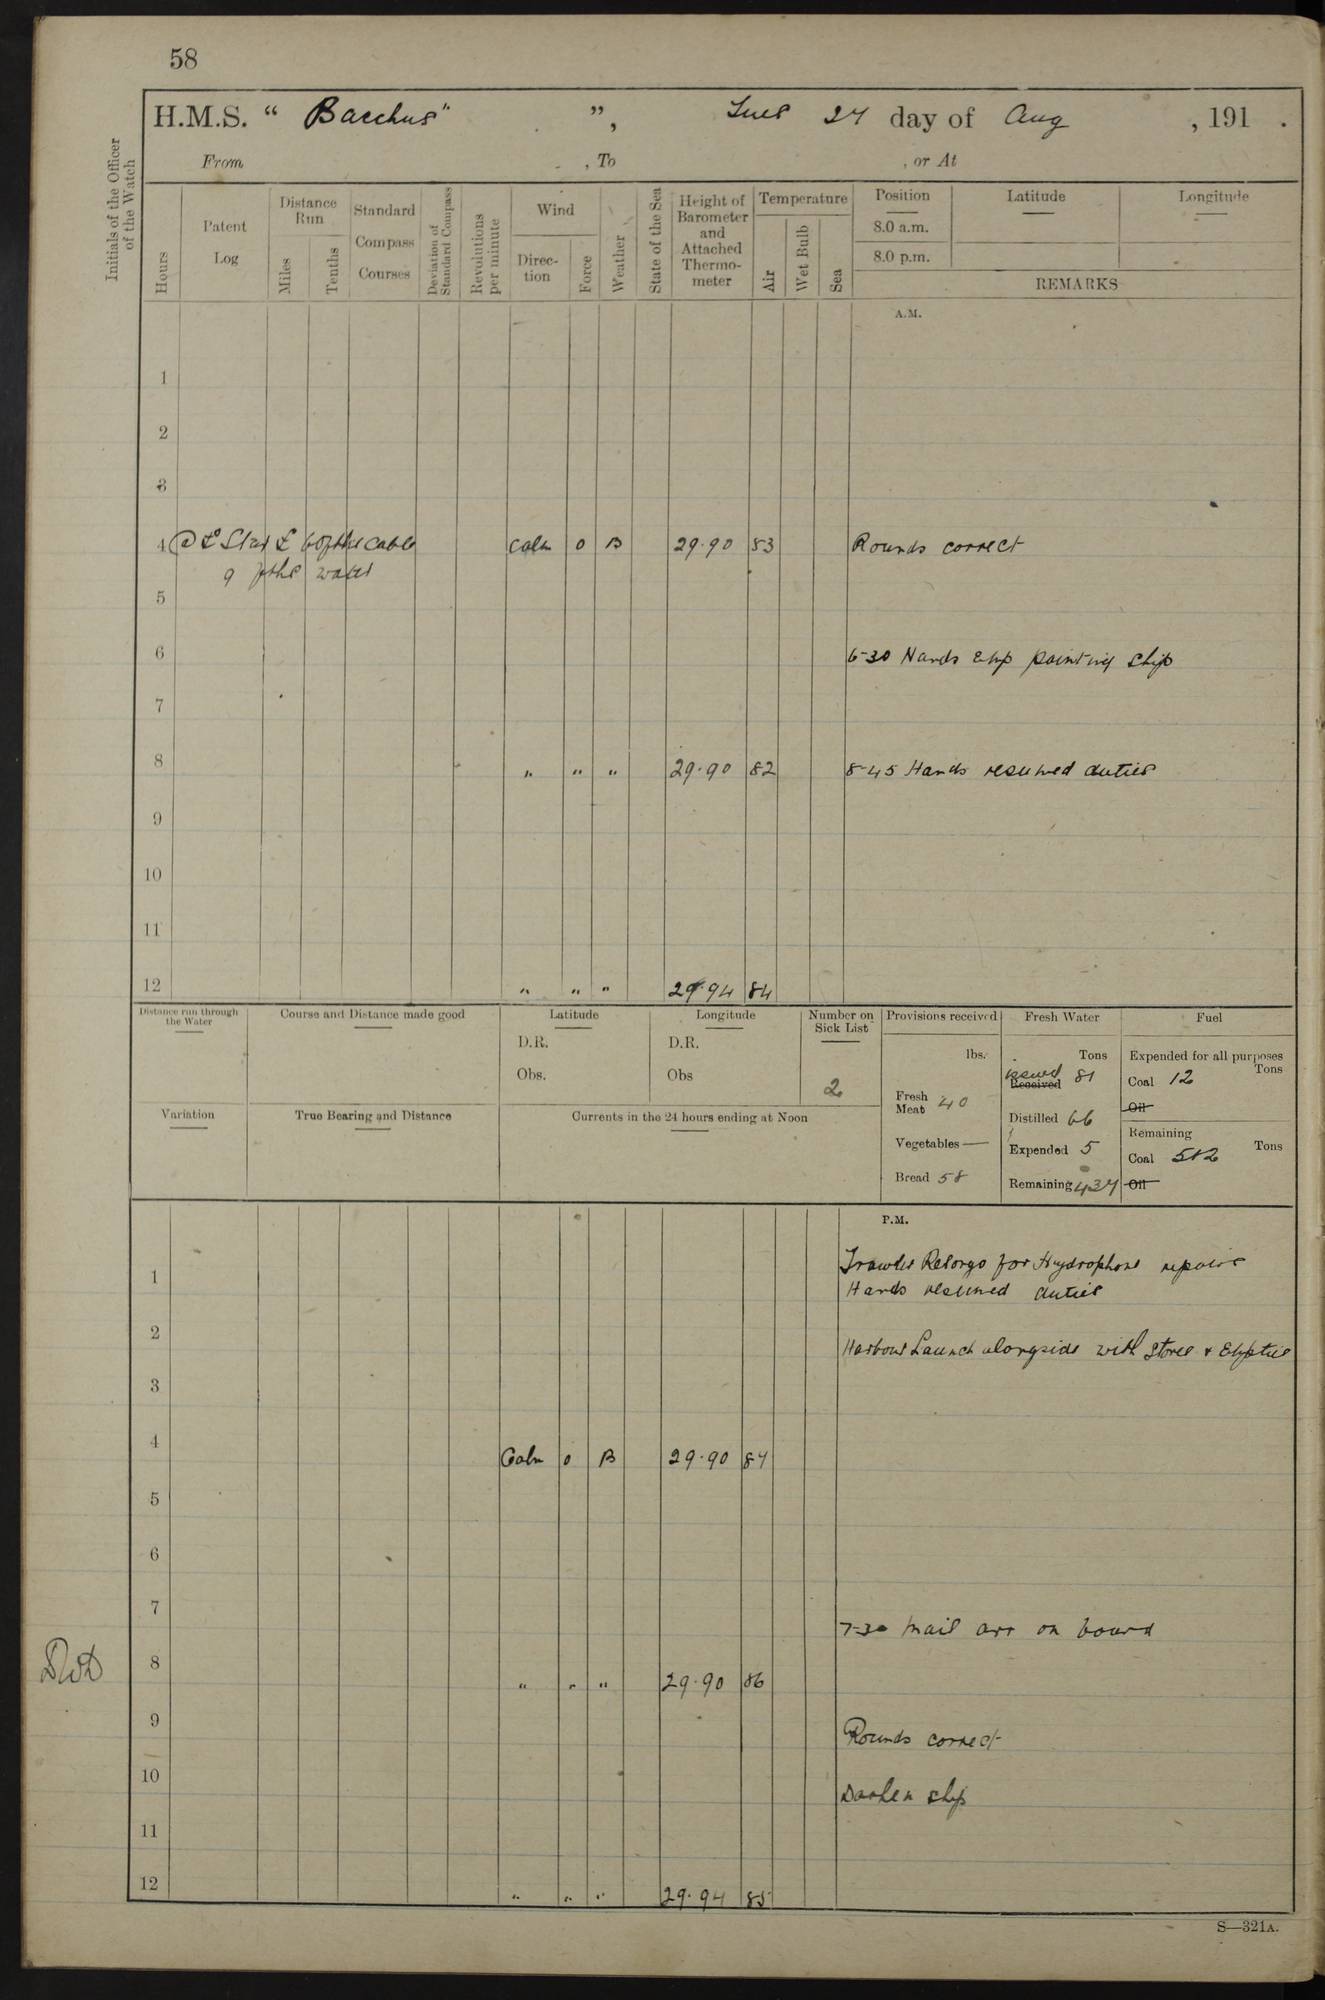 58
H.M.S. “ Bacchus" ”, Tues 27 day of Aug , 191 .
From , To , or At
Initials of the Officer of the Watch
Hours
Patent Log
Distance Run
Miles
Tenths
Standard Compass Courses
Deviation of Standard Compass
Revolutions per minute
Wind
Direction
Force
Weather
State of the Sea
Height of Barometer and Attached Thermometer
Temperature
Air
Wet Bulb
Sea
Position
8.0 a.m.
8.0 p.m.
Latitude
Longitude
REMARKS
A.M.
1
2
3
4 Calm 0 B 29.90 83 Rounds correct
5
6 6-30 Hands emp painting ship
7
8 " " " 29.90 82 8-45 Hands resumed duties
9
10
11
12 " " " 29.94 84
Distance run through the Water
Course and Distance made good
Latitude
D.R.
Obs.
Longitude
D.R.
Obs
Number on Sick List
2
Provisions received
lbs.
Fresh Meat 40
Vegetables —
Bread 58
Fresh Water
Tons
issued Received 81
Distilled 66
Expended 5
Remaining 437
Fuel
Expended for all purposes
Tons
Coal 12
Oil
Remaining
Tons
Coal 512
Oil
Variation
True Bearing and Distance
Currents in the 24 hours ending at Noon
P.M.
Trawler Relorgo for Hydrophone repairs
1 Hands resumed duties
2 Harbour Launch alongside with stores & Empties
3
4 Calm 0 B 29.90 84
5
6
7 7-30 Mail arr on board
8 " " " 29.90 86
9 Rounds correct
10 Darken ship
11
12 " " " 29.94 85
S—321A.